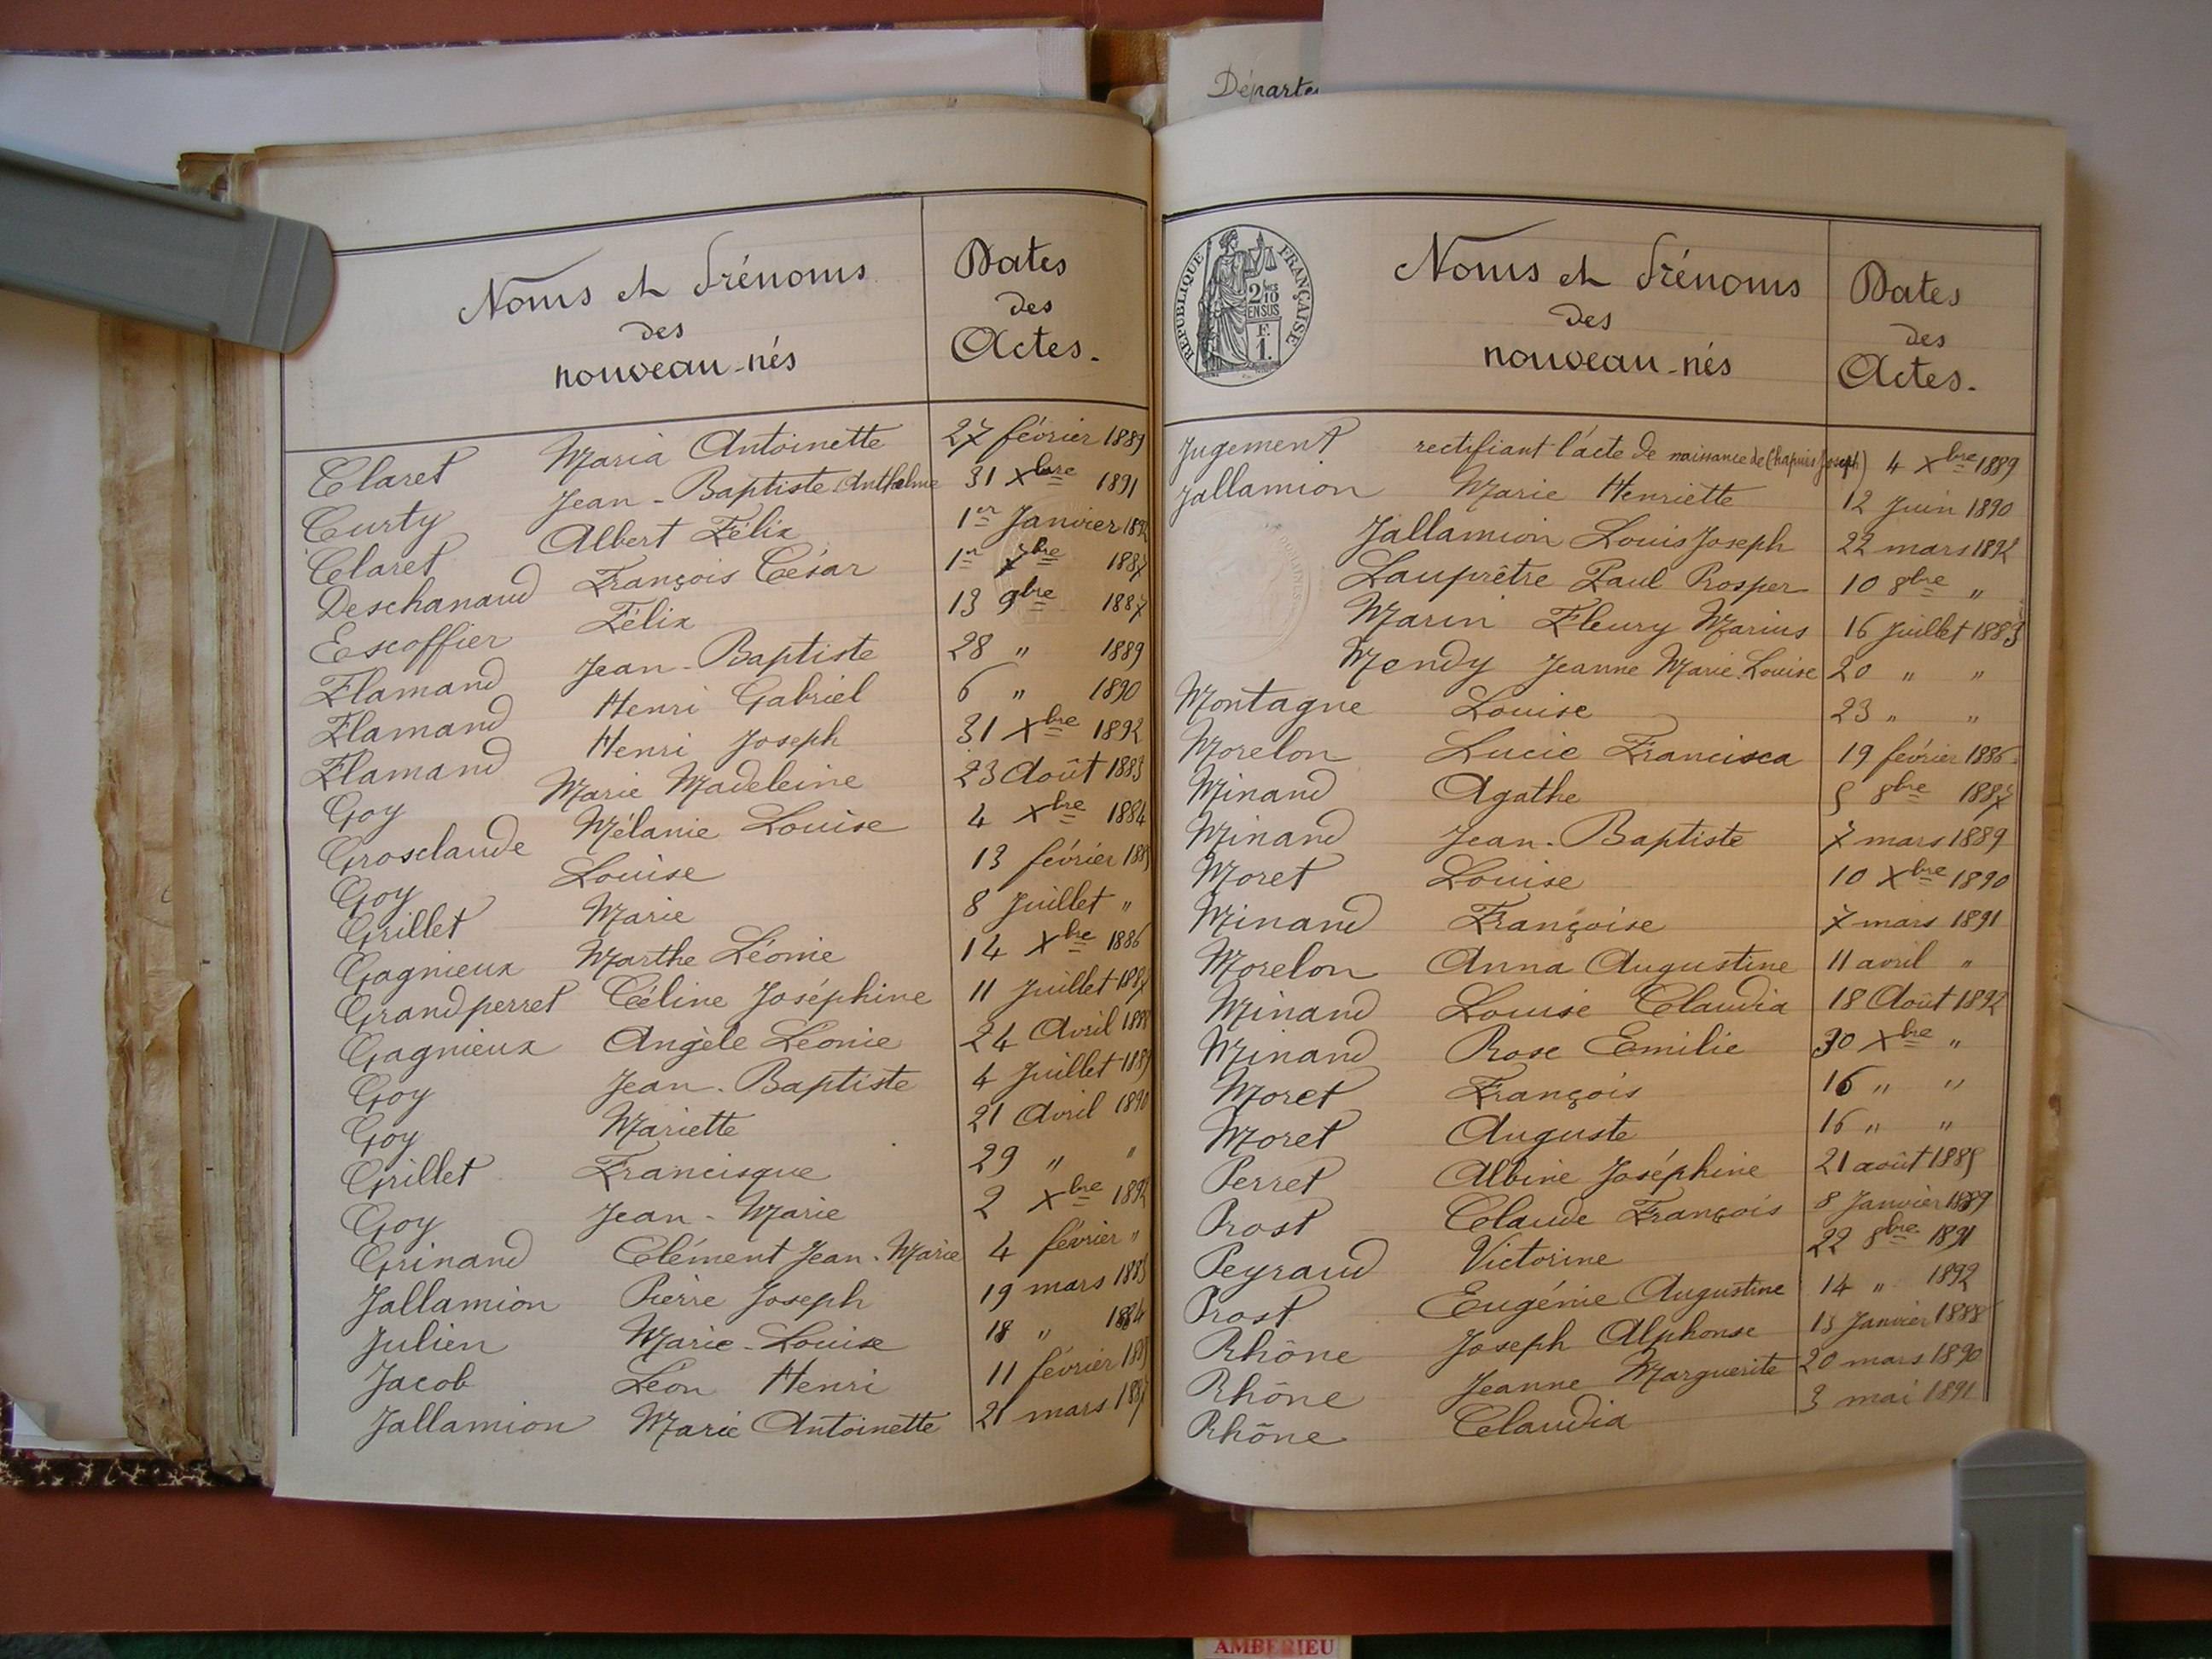 Départe
Noms et Prénoms
des
nouveau-nés
Dates
des
Actes.
Claret Maria Antoinette 27 février 1889
Curty Jean-Baptiste Anthelme 31 Xbre 1891
Claret Albert Félix 1er Janvier 1892
Deschanaud François César 1er 7bre 1887
Escoffier Félix 13 9bre 1887
Flamand Jean-Baptiste 28 " 1889
Flamand Henri Gabriel 6 " 1890
Flamand Henri Joseph 31 Xbre 1892
Goy Marie Madeleine 23 Août 1883
Grosclaude Mélanie Louise 4 Xbre 1884
Goy Louise 13 février
Grillet Marie 8 Juillet "
Gagnieux Marthe Léonie 14 Xbre 1886
Grandperret Céline Joséphine 11 Juillet 1887
Gagnieux Angèle Léonie 24 Avril 1888
Goy Jean-Baptiste 4 Juillet 1889
Goy Mariette 21 Avril 1890
Grillet Francisque 29 " "
Goy Jean-Marie 2 Xbre 1892
Grinand Clément Jean-Marie 4 février "
Jallamion Pierre Joseph 19 mars
Julien Marie-Louise 18 " 1884
Jacob Léon Henri 11 février
Jallamion Marie Antoinette 21 mars 1887
REPUBLIQUE FRANÇAISE
2/10
EN SUS
F.
1.
Noms et Prénoms
des
nouveau-nés
Dates
des
Actes.
Jugement rectifiant l'acte de naissance de (Chapuis Joseph) 4 Xbre 1889
Jallamion Marie Henriette 12 Juin 1890
Jallamion Louis Joseph 22 mars 1892
Lauprêtre Paul Prosper 10 8bre "
Marin Fleury Marius 16 Juillet 1883
Mendy Jeanne Marie Louise 20 " "
Montagne Louise 23 " "
Morelon Lucie Francisca 19 février 1886
Minand Agathe 5 8bre 1887
Minand Jean-Baptiste 7 mars 1889
Moret Louise 10 Xbre 1890
Minand Françoise 7 mars 1891
Morelon Anna Augustine 11 avril "
Minand Louise Claudia 18 Août 1892
Minand Rose Emilie 30 Xbre "
Moret François 16 " "
Moret Auguste 16 " "
Perret Albine Joséphine 21 août 1885
Prost Claude François 8 Janvier 1889
Peyraud Victorine 22 8bre 1891
Prost Eugénie Augustine 14 " 1892
Rhône Joseph Alphonse 13 Janvier 1888
Rhône Jeanne Marguerite 20 mars 1890
Rhône Claudia 3 mai 1891
AMBERIEU